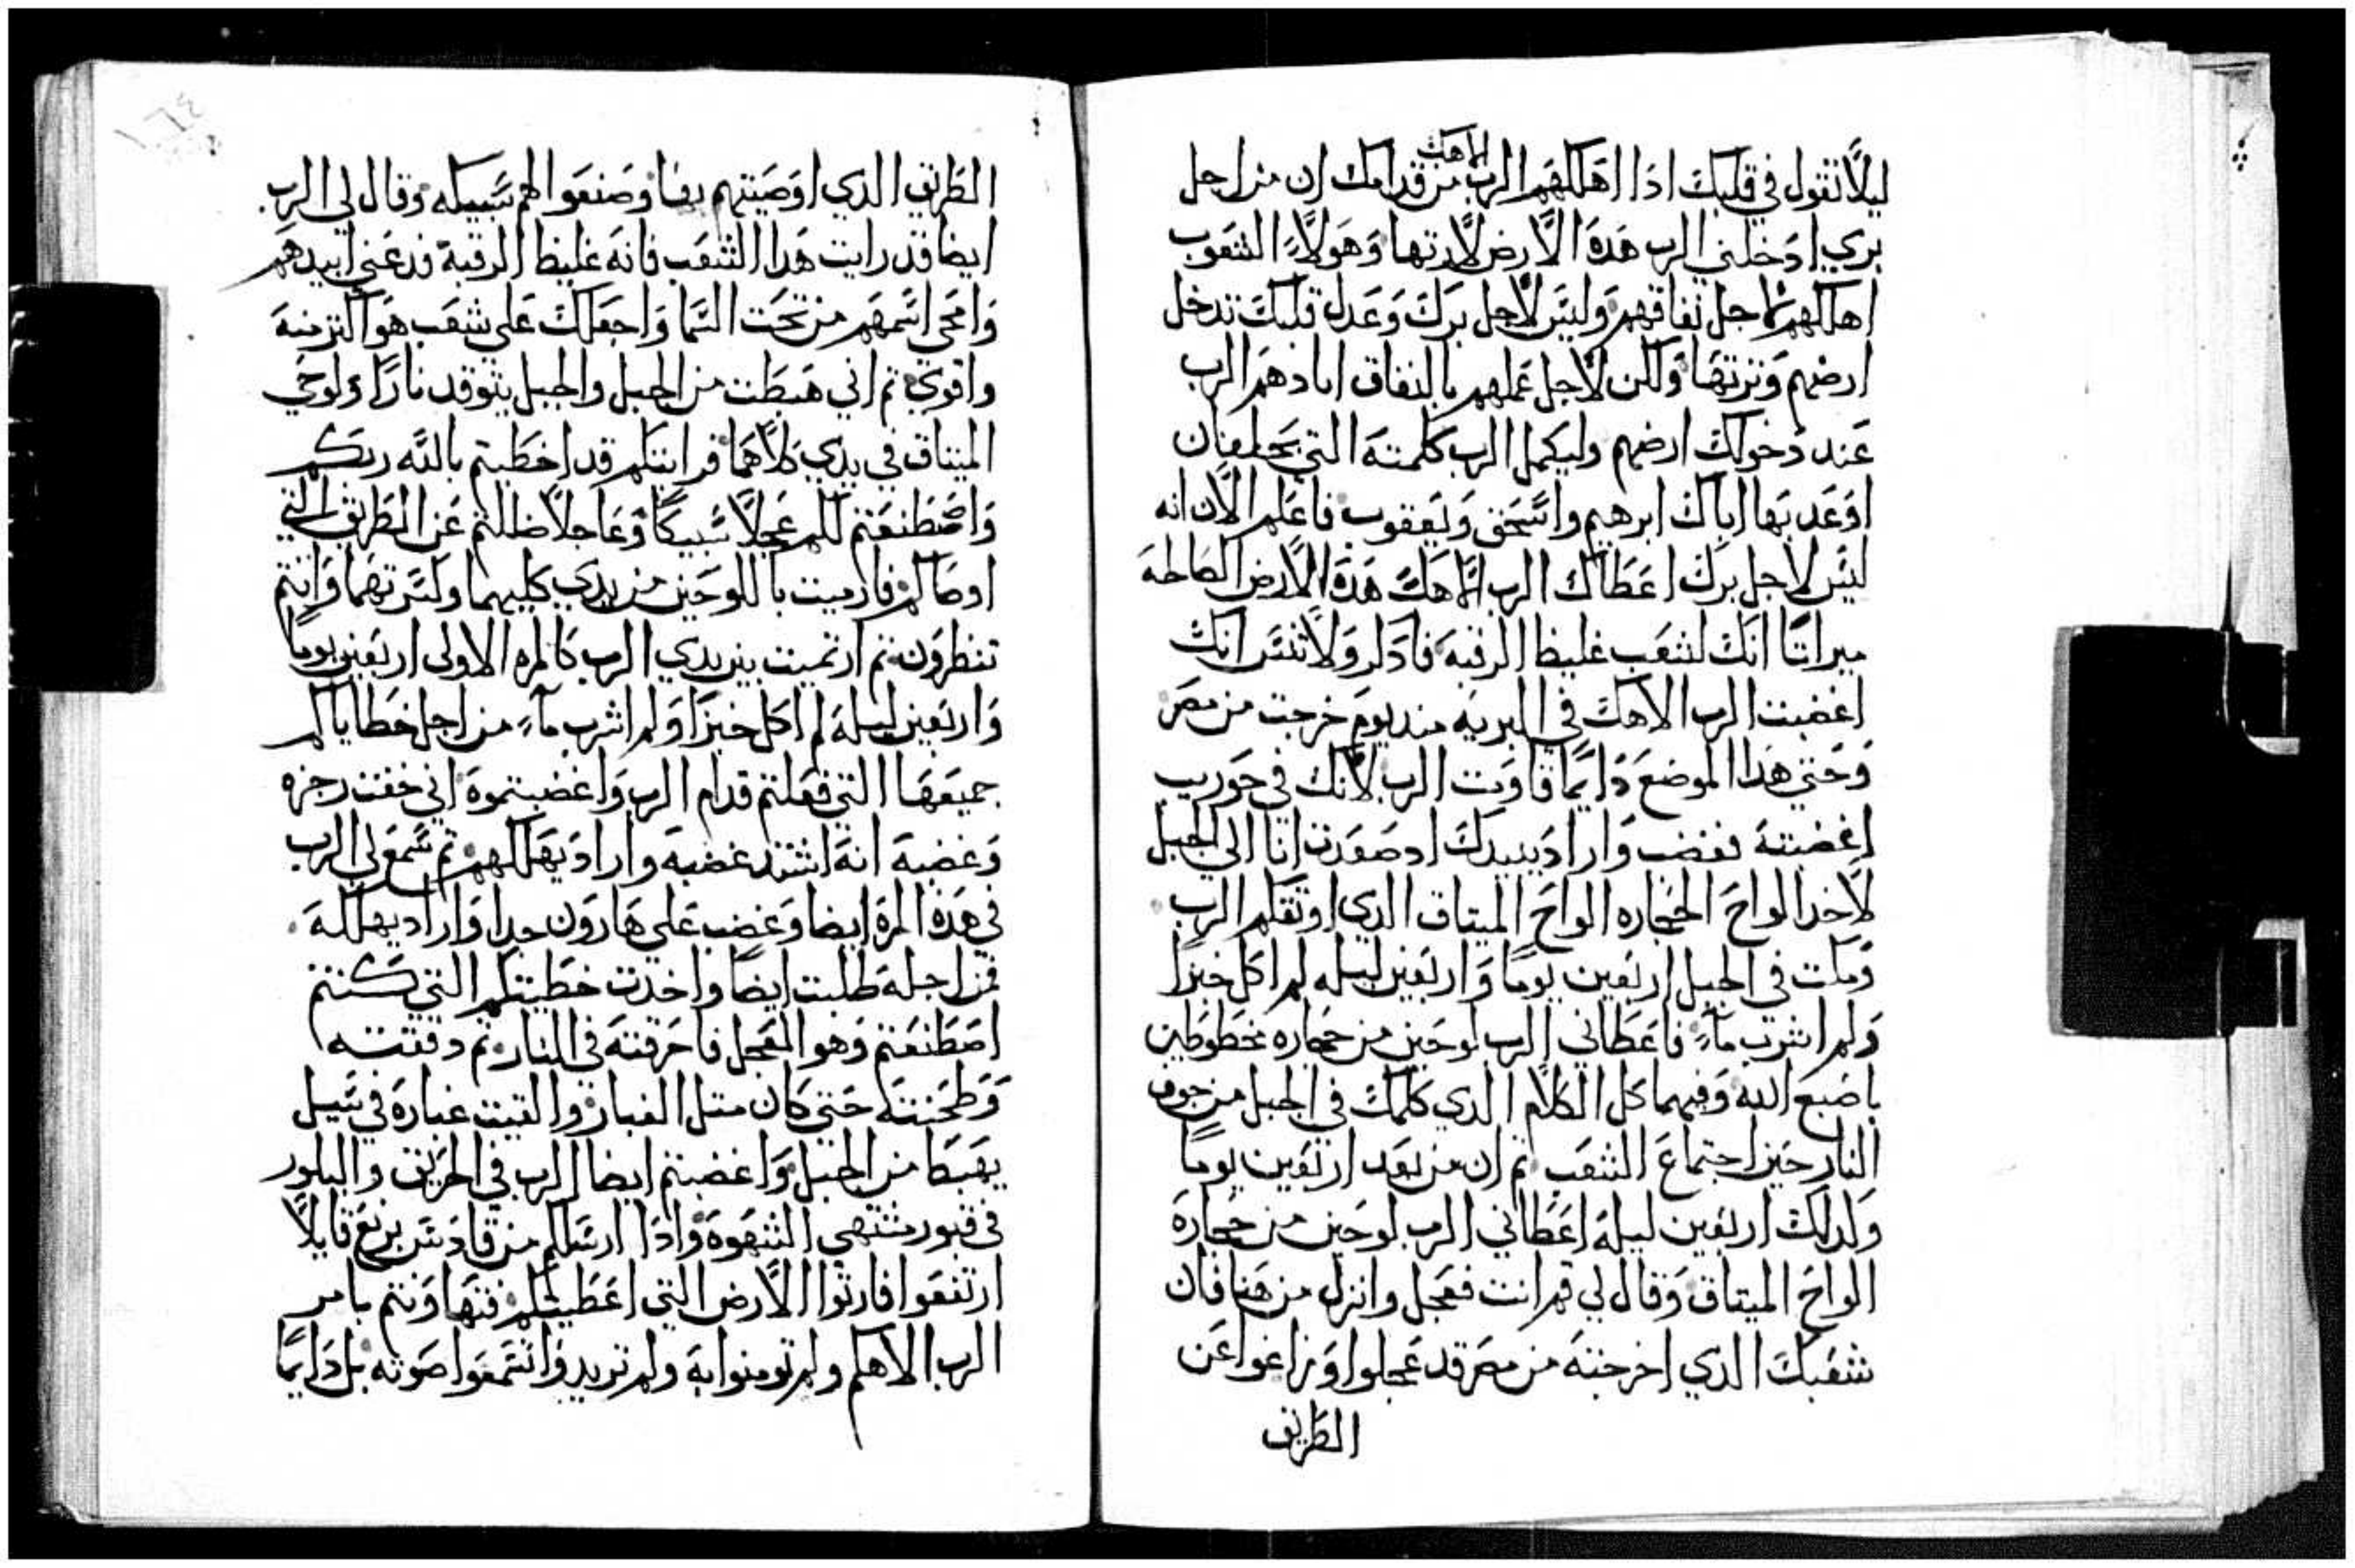 ليلا تقول في قلبك ادا اهلكهم الرب الاهك من قدامك ان من اجل
بري ادخلني الرب هده الارض لارتها وهولاء الشعوب
اهلكهم لاجل نفاقهم وليس لاجل برك وعدل قلبك تدخل
ارضهم وترتها ولكن لاجل عملهم بالنفاق ابادهم الرب
عند دخولك ارضهم وليكمل الرب كلمته التي
اوعد بها اباك ابرهيم واسحق ويعقوب فاعلم الان انه
ليس لاجل برك اعطاك الرب الاهك هده الارض الصالحه
ميراتا انك لشعب غليظ الرقبه فادكر ولا تنس انك
اغضبت الرب الاهك في البريه مند يوم خرجت من مصر
وحتي هدا الموضع دايما قاومت الرب لانك في حوريب
اغضبته فغضب واراد يبيدك اد صعدت انا الي الجبل
لاخد الواح الحجاره الواح الميتاق الدي اوتقكم الرب
ومكت في الجبل اربعين يوما واربعين ليله لم اكل خبزا
ولم اشرب ماء فاعطاني الرب لوحين من حجاره مخطوطين
باصبع الله وفيهما كل الكلام الدي كلمك في الجبل من جوف
النار حين اجتماع الشعب تم ان من بعد اربعين يوما
ولدلك اربعين ليله اعطاني الرب لوحين من حجارة
الواح الميتاق وقال لي قم انت فعجل وانزل من هنا فان
شعبك الدي اخرجته من مصر قد عجلوا وزاغوا عن
الطريق
الطريق الدي اوصيتهم بها وصنعوا لهم سبيكه وقال لي الرب
ايضا قد رايت هدا الشعب فانه غليظ الرقبة فدعني ابيدهم
وامحي اسمهم من تحت السما واجعلك علي شعب هو اكتر منه
واقوي تم اني هبطت من الجبل والجبل يتوقد نارا ولوحي
الميتاق في يدي كلاهما فرايتكم قد اخطيتم بالله ربكم
واصطنعتم لكم عجلا سبيكا وعاجلا ضللتم عن الطريق التي
اوصاكم فارميت باللوحين من يدي كليهما وكسرتهما وانتم
تنظرون تم ارتميت بين يدي الرب كالمره الاولى اربعين يوما
واربعين ليله لم اكل خبزا ولم اشرب ماء من اجل خطاياكم
جميعها التي فعلتم قدام الرب واغضبتموه اني خفت رجزه
وغضبه انه اشتد غضبه واراد يهلكهم تم سمع لي الرب
في هده المرة ايضا وغضب علي هارون جدا واراد يهلكه
فمن اجله طلبت ايضا واخدت خطيتكم التي كنتم
اصطنعتم وهو العجل فاحرقته في النار تم دققته
وطحنته حتي كان متل الغبار والقيت غباره في سيل
يهبط من الجبل واغضبتم ايضا الرب في الحريق والبلور
في قبور مشتهي الشهوه وادا ارسلكم من قادس برنع قايلا
ارتفعوا فارتوا الارض التي اعطيتكم فتهاونتم بامر
الرب الاهكم ولم تومنوا به ولم تريدوا تسمعوا صوته بل دايما